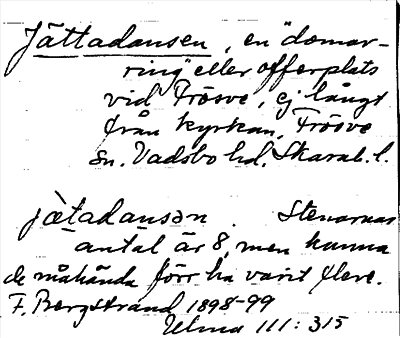 Jättadansen, en "domar-
ring" eller offerplats
vid Frösve, ej långt
från kyrkan, Frösve
sn. Vadsbo hd. Skarab. l.
jätadansən. Stenarnas
antal är 8, men kunna
de måhända förr ha varit flere.
F. Bergstrand 1898-99
Ulma 111:315